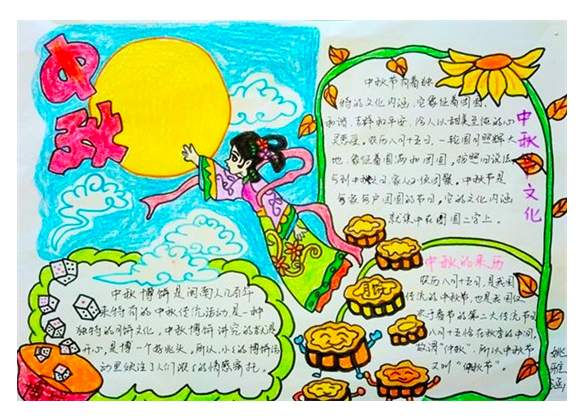 中秋
中秋文化
中秋节有着独
特的文化内涵，它象征着团圆、
和谐、吉祥和平安，给人以甜美至依的心
灵感受。农历八月十五日，一轮圆月照辉大
地，象征着圆满和团圆。按照旧说法
与到中秋，家人必须团聚。中秋节是
家家户户团圆的节日，它的文化内涵
就集中在团圆二字上。
中秋的来历
农历八月十五日，是我国
传统的中秋节，也是我国仅
次于春节的第二大传统节日
八月十五恰在秋季的中间，
故谓“仲秋”，所以中秋节
又叫“仲秋节”。
中秋博饼是闽南人几百年
来特有的中秋传统活动是一种
独特的月饼文化。中秋博饼讲究的就是
开心，是博一个好兆头。所以，小小的博饼活
动里倾注了人们浓浓的情感寄托。
姚雅涵